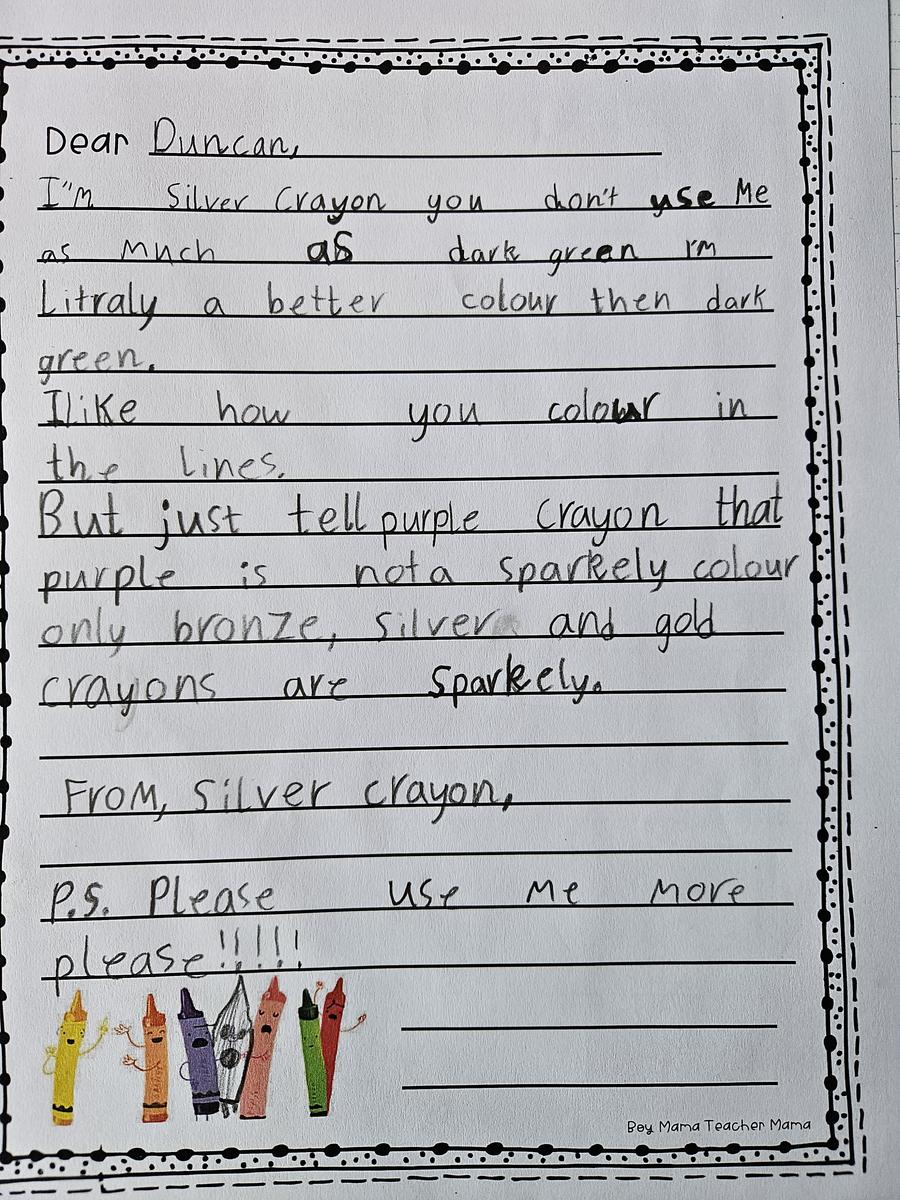 Dear Duncan,
I"m Silver Crayon you don't use Me
as much as dark green I'm
Litraly a better colour then dark
green.
I like how you colour in
the lines.
But just tell purple Crayon that
purple is not a sparkely colour
only bronze, silver and gold
crayons are sparkely.
From, Silver crayon,
P.S. Please use me more
please!!!!!
Boy Mama Teacher Mama